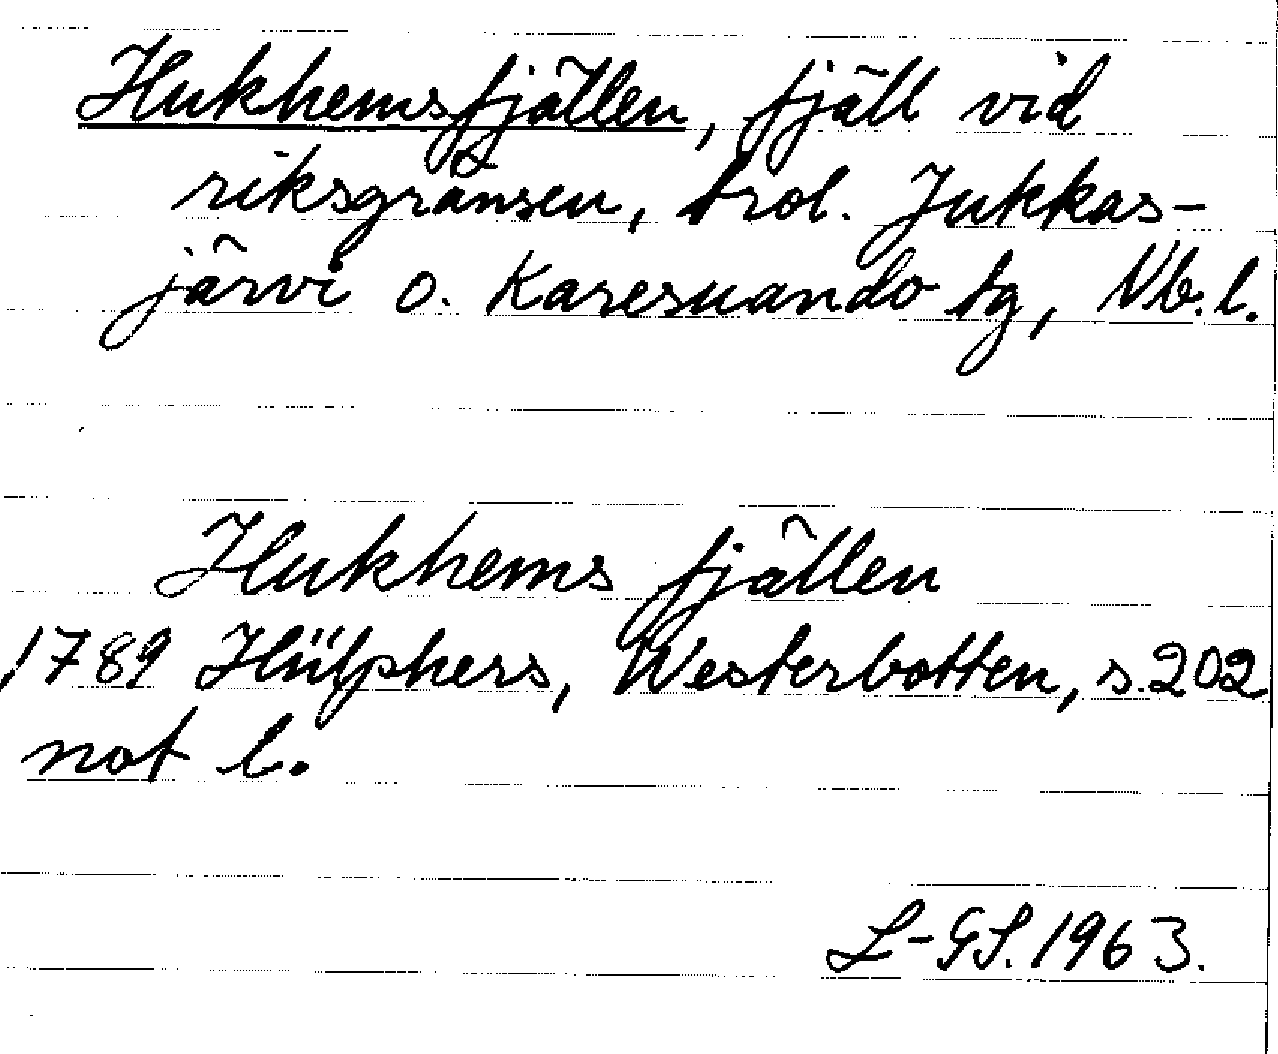 Hukhemsfjällen, fjäll vid
riksgränsen, trol. Jukkas-
järvi o. Karesuando tg, Nb. l.
Hukhems fjällen
1789 Hülphers, Westerbotten, s. 202
not l.
L-GS. 1963.